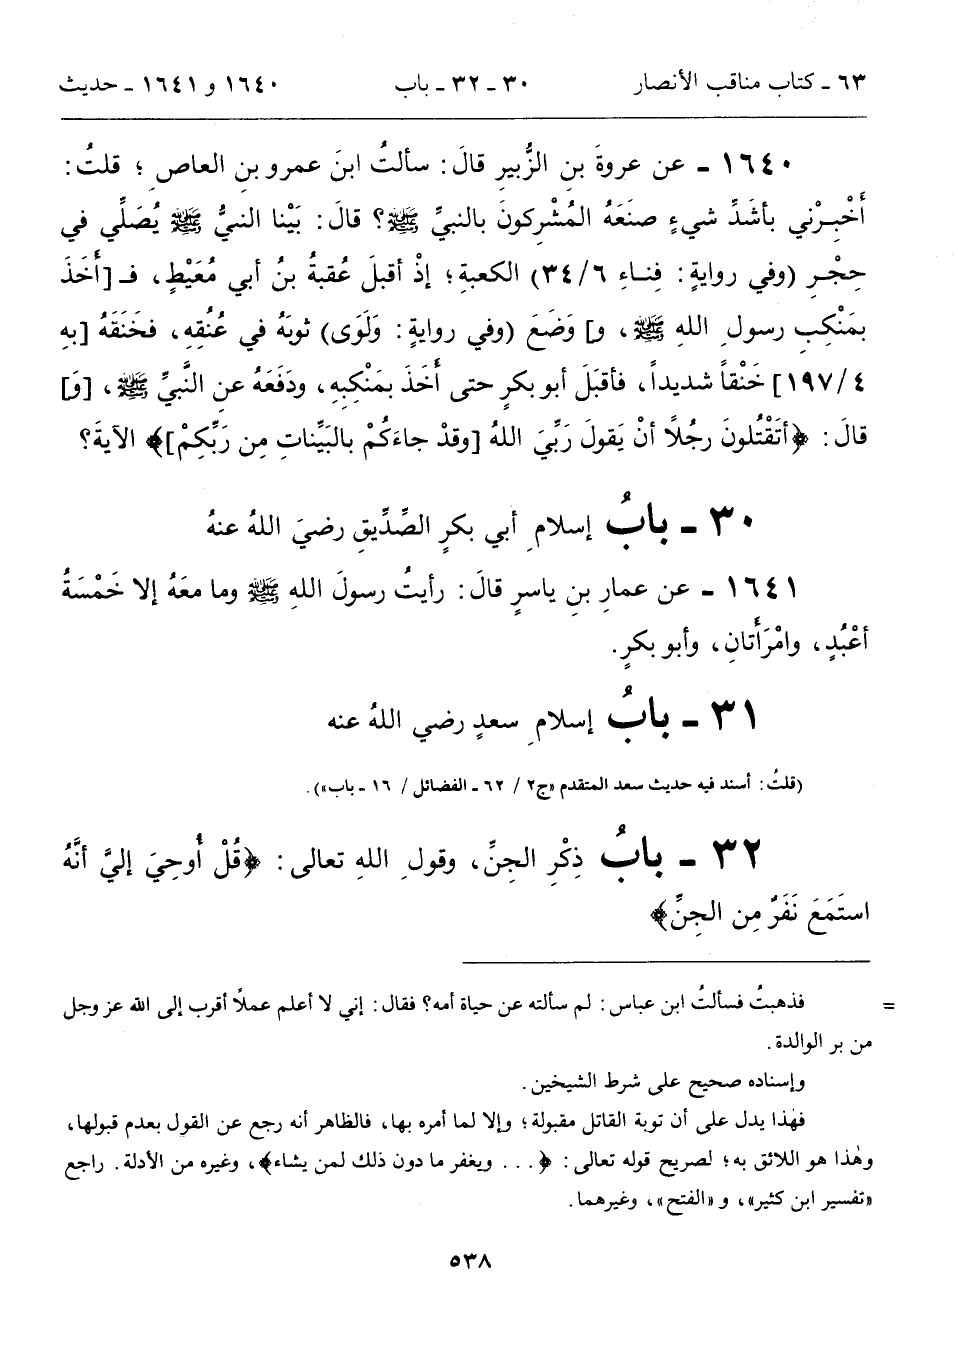 ٦٣ ـ كتاب مناقب الأنصار ٣٠ ـ ٣٢ ـ باب ١٦٤٠ و ١٦٤١ ـ حديث
١٦٤٠ ـ عن عروةَ بنِ الزُّبيرِ قالَ: سألتُ ابنَ عمرِو بنِ العاصِ؛ قلتُ:
أَخْبِرْني بأشَدِّ شيءٍ صنَعَهُ المُشْركونَ بالنبيِّ ﷺ؟ قالَ: بَيْنا النبيُّ ﷺ يُصَلِّي في
حِجْرِ (وفي روايةٍ: فِناءِ ٣٤/٦) الكعبةِ؛ إذْ أقبلَ عُقبةُ بنُ أبي مُعَيْطٍ، فـ [أَخَذَ
بمَنْكِبِ رسولِ اللهِ ﷺ، و] وَضَعَ (وفي روايةٍ: وَلَوَى) ثوبَهُ في عُنُقِهِ، فخَنَقَهُ [بهِ
١٩٧/٤] خَنْقاً شديداً، فأقبَلَ أبو بكرٍ حتى أَخَذَ بمَنْكِبِهِ، ودَفَعَهُ عنِ النَّبيِّ ﷺ، [وَ]
قالَ: ﴿أتَقْتُلونَ رجُلاً أنْ يَقولَ رَبِّيَ اللهُ [وقدْ جاءَكُمْ بالبَيِّناتِ مِن رَبِّكِمْ]﴾ الآيةَ؟
٣٠ ـ بابُ إسلامِ أبي بكرٍ الصِّدِّيقِ رضيَ اللهُ عنهُ
١٦٤١ ـ عن عمارِ بنِ ياسرٍ قالَ: رأيتُ رسولَ اللهِ ﷺ وما معَهُ إلا خَمْسَةُ
أعْبُدٍ، وامْرَأَتانِ، وأبو بكرٍ.
٣١ ـ بابُ إسلامِ سعدٍ رضي اللهُ عنه
(قلتُ: أسند فيه حديث سعد المتقدم «ج٢ / ٦٢ ـ الفضائل / ١٦ ـ باب»).
٣٢ ـ بابُ ذِكْرِ الجنِّ، وقولِ اللهِ تعالى: ﴿قُلْ أُوحِيَ إليَّ أنَّهُ
استَمَعَ نَفَرٌ مِن الجِنِّ﴾
= فذهبتُ فسألتُ ابن عباس: لم سألته عن حياة أمه؟ فقال: إني لا أعلم عملاً أقرب إلى الله عز وجل
من بر الوالدة.
وإسناده صحيح على شرط الشيخين.
فهٰذا يدل على أن توبة القاتل مقبولة؛ وإلا لما أمره بها، فالظاهر أنه رجع عن القول بعدم قبولها،
وهٰذا هو اللائق به؛ لصريح قوله تعالى: ﴿... ويغفر ما دون ذلك لمن يشاء﴾، وغيره من الأدلة. راجع
«تفسير ابن كثير»، و «الفتح»، وغيرهما.
٥٣٨